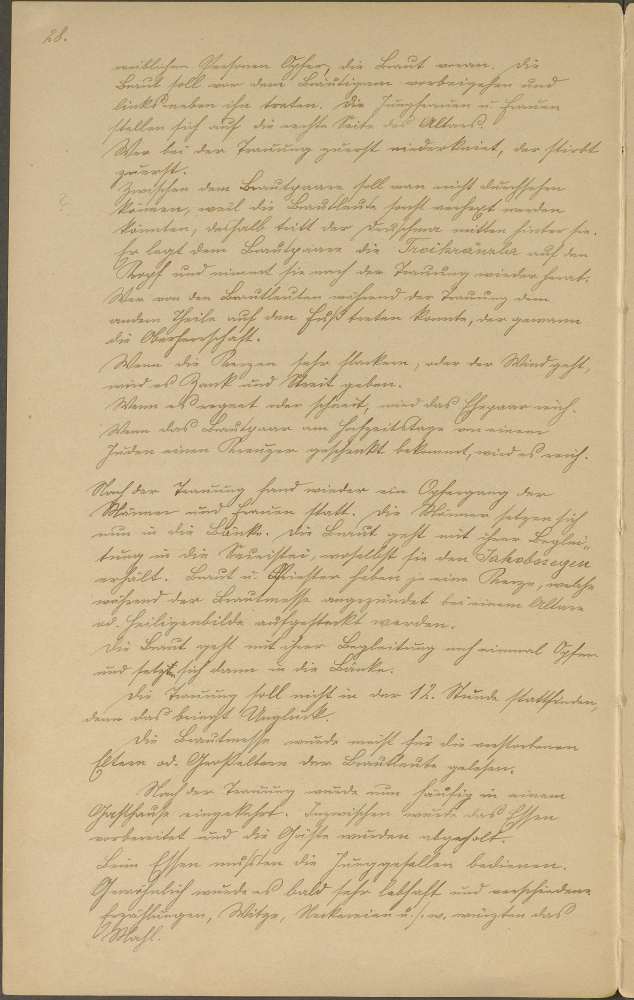 28.
weiblichen Personen Opfer, die Braut voran. Die
Braut soll vor dem Bräutigam vorbeigehen und
links neben ihn treten. Die Jungfrauen u. Frauen
stellen sich auf die rechte Seite des Altars.
Wer bei der Trauung zuerst niederkniet, der stirbt
zuerst.
Zwischen dem Brautpaare soll man nicht durchsehen
können, weil die Brautleute sonst verhext werden
könnten, deshalb tritt der mitten hinter sie.
Er legt dem Brautpaare die auf den
Kopf und nimmt sie nach der Trauung wieder herab.
Wer von den Brautleuten während der Trauung dem
andern Theile auf den Fuß treten konnte, der gewann
die Oberherrschaft.
Wenn die Kerzen sehr flackern, oder der Wind geht,
wird es Zank und Streit geben.
Wenn es regnet oder schneit, wird das Ehepaar reich.
Wenn das Brautpaar am Hochzeitstage von einem
Juden einen Kreuzer geschenkt bekommt, wird es reich.
Nach der Trauung fand wieder ein Opfergang der
Männer und Frauen statt. Die Männer setzen sich
nun in die Bänke. Die Braut geht mit ihrer Beglei-
tung in die Sakristei, woselbst sie den Jakobssegen
erhält. Braut u. Priester haben je eine Kerze, welche
während der Brautmesse angezündet bei einem Altare
od. Heiligenbilde aufgesteckt werden.
Die Braut geht mit ihrer Begleitung noch einmal Opfer
und setzt sich dann in die Bänke.
Die Trauung soll nicht in der 12. Stunde stattfinden,
denn das bringt Unglück.
Die Brautmesse wurde meist für die verstorbenen
Eltern od. Großeltern der Brautleute gelesen.
Nach der Trauung wurde nun häufig in einem
Gasthause eingekehrt. Inzwischen wurde das Essen
vorbereitet und die Gäste wurden abgeholt.
Beim Essen mußten die Junggesellen bedienen.
Gewöhnlich wurde es bald sehr lebhaft und verschiedene
Erzählungen, Witze, Neckereien u. s. w. würzten das
Mahl.